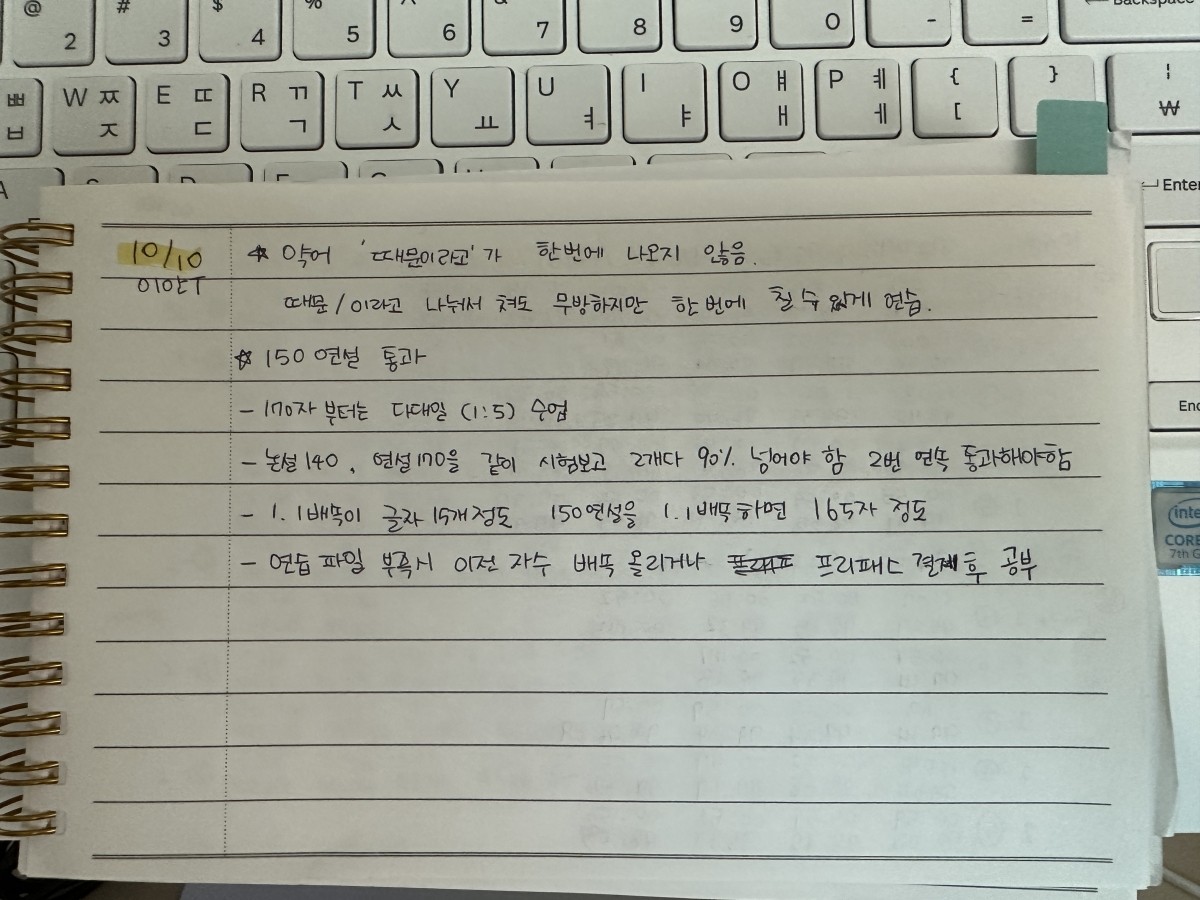 @ # $ % ^ & Backspace
2 3 4 5 6 7 8 9 0 - =
ㅃ W ㅉ E ㄸ R ㄲ T ㅆ Y U I O ㅒ P ㅖ { } ¦
ㅂ ㅈ ㄷ ㄱ ㅅ ㅛ ㅕ ㅑ ㅐ ㅔ [ ₩
A Enter
10/10 ☆ 약어 '때문이라고'가 한번에 나오지 않음.
때문/이라고 나눠서 쳐도 무방하지만 한 번에 칠 수 있게 연습.
☆ 150 연설 통과
- 170자 부터는 다대일 (1:5) 수업
- 논설 140, 연설170을 같이 시험보고 2개다 90% 넘어야 함 2번 연속 통과해야함
- 1.1배뚝이 글자 15개정도 150연설을 1.1배뚝하면 165자 정도
- 연습 파일 부족시 이전 자수 배뚝 올리거나 프리패스 결제 후 공부
End
inte
CORE
7th G